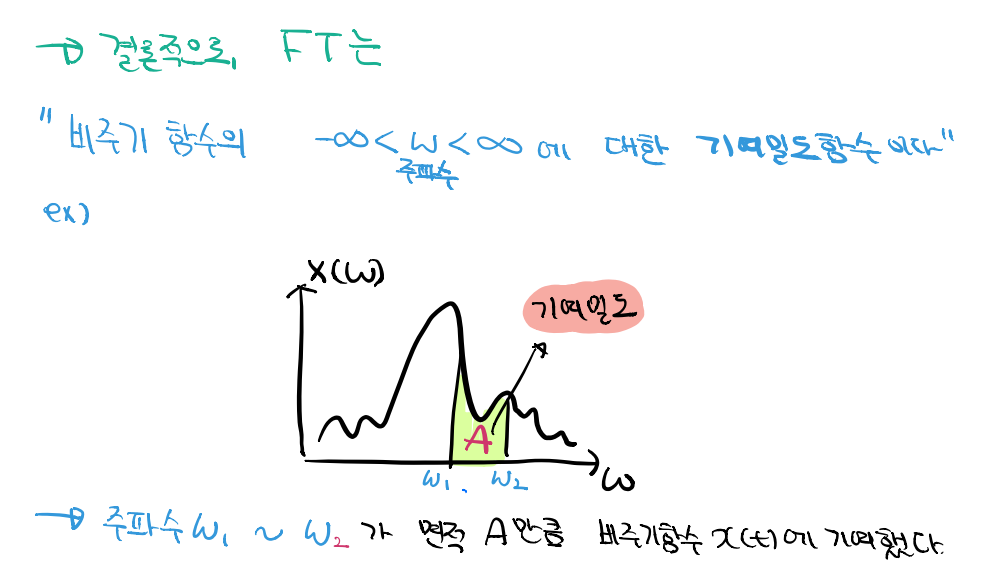 → 결론적으로, FT는
" 비주기 함수의 -∞ < w < ∞ 에 대한 기여밀도함수이다"
주파수
ex)
X(w)
기여밀도
A
w₁. w₂ w
→ 주파수 w₁ ~ w₂ 가 면적 A만큼 비주기함수 x(t)에 기여했다.